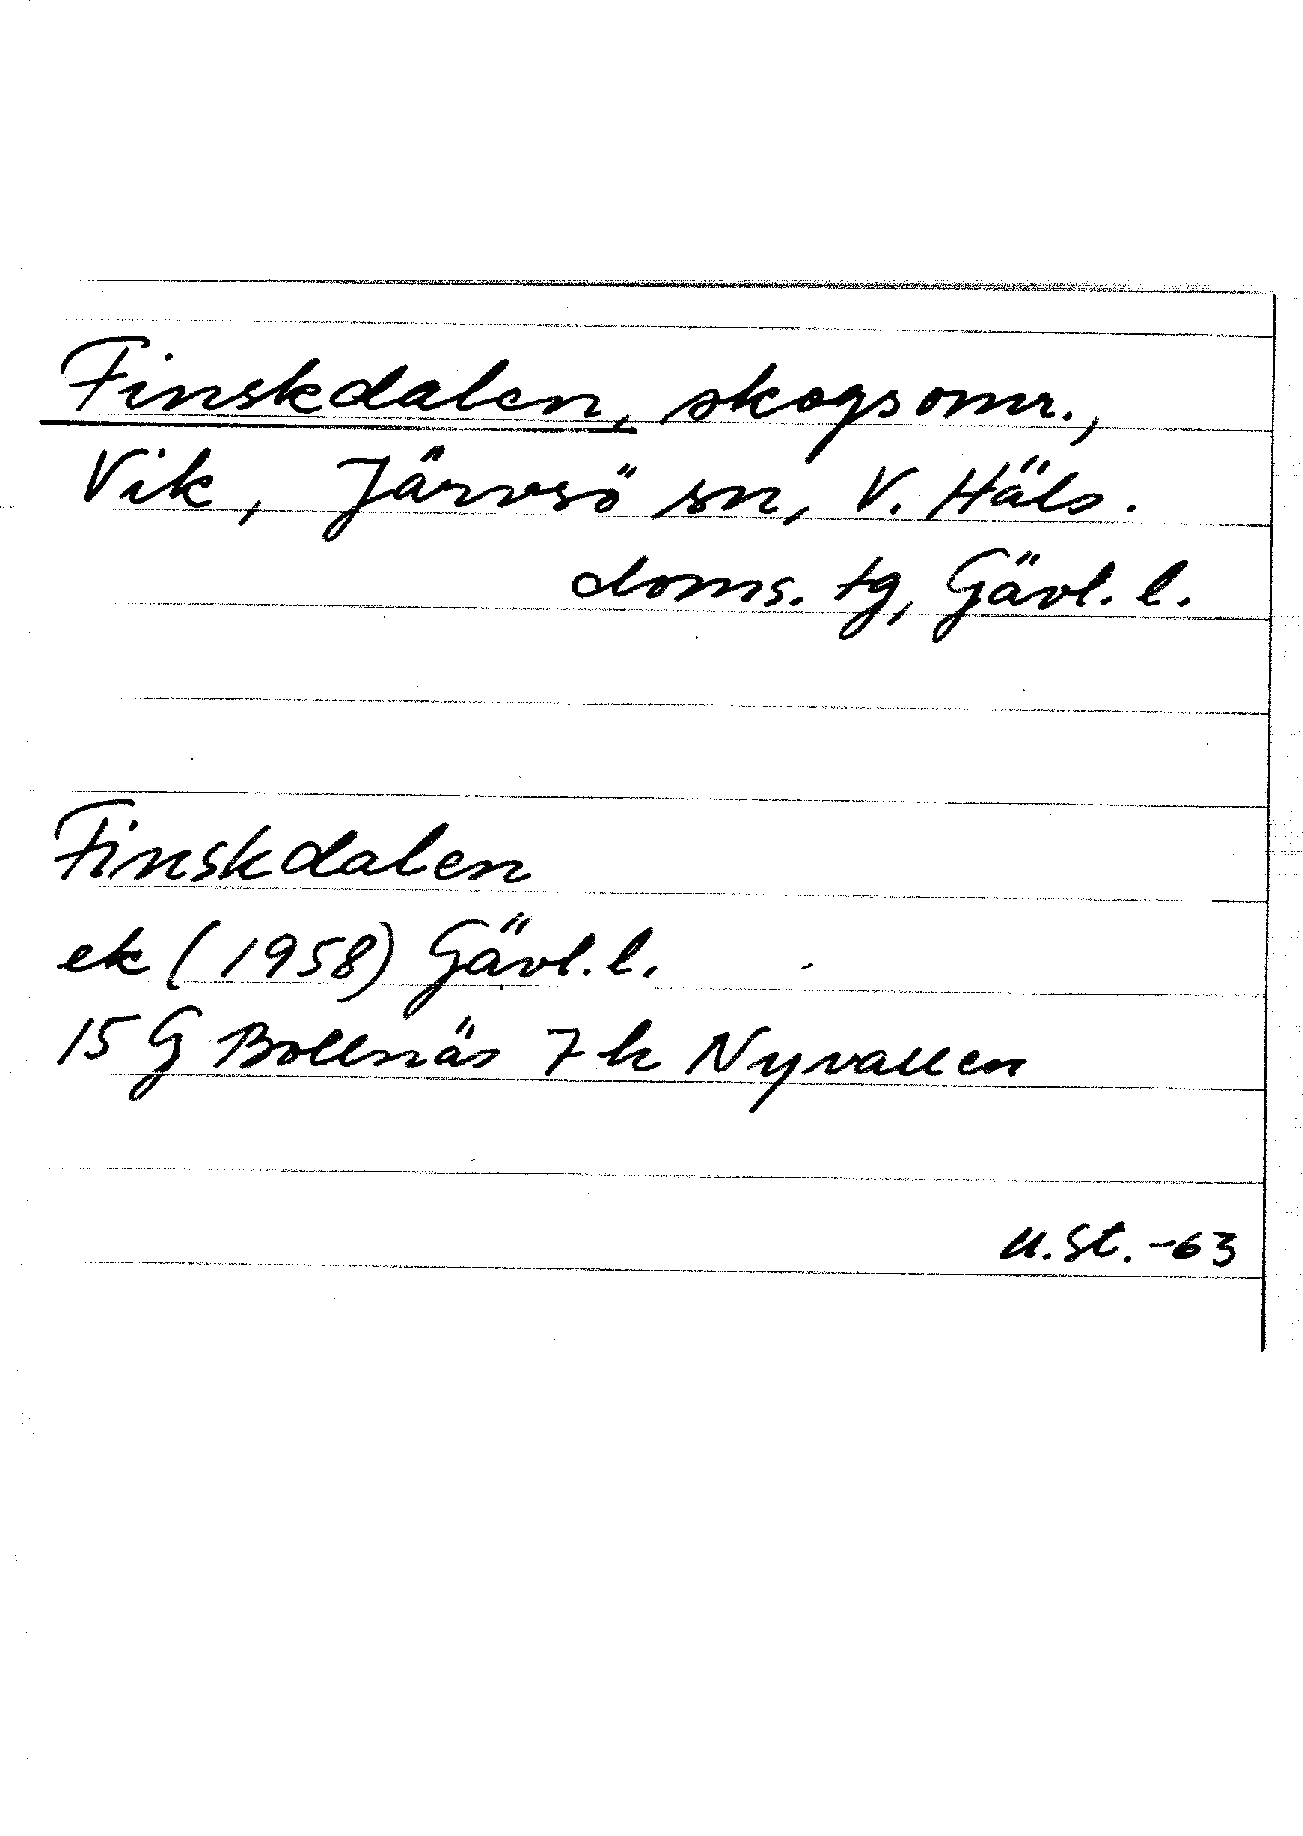 Finskdalen, skogsomr.,
Vik, Järvsö sn, V. Häls.
doms. tg, Gävl. l.
Finskdalen
ek (1958) Gävl. l.
15 G Bollnäs 7 h Nyvallen
U. St. -63